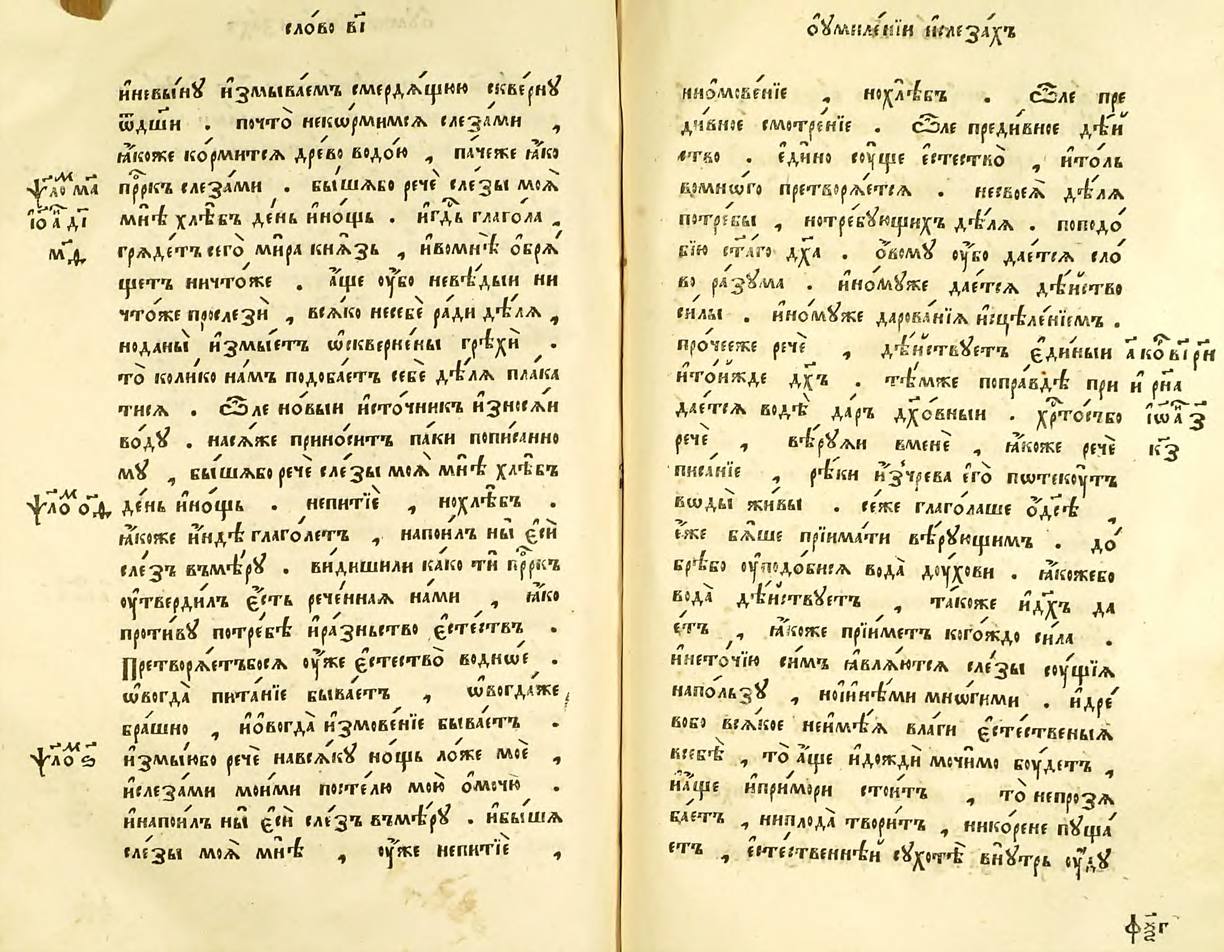 сло́во в҃і
и҆невы́нꙋ и҆змыва́емъ смердѧ́щюю скве́рнꙋ
ѿдш҃и . почто̀ некѡ́рмимсѧ слеза́ми ,
ꙗ҆́коже ко́рмитсѧ древо водо́ю , па́чеже ꙗ҆́ко
пр҃ркъ слеза́ми . бы́шѧбо речѐ сле́зы моѧ̀
ѱало́м ма҃
мнѣ̀ хлѣ́бъ де́нь и҆но́щь . и҆гд҃ь глагола ,
і҆ѡ҃а д҃і
грѧде́тъ сего̀ ми́ра кнѧ́зь , и҆вомнѣ̀ ѡ҆брѧ́
м҃д
щетъ ничто́же . а҆́ще оу҆́бо невѣ́дыи ни
что́же прослези̂ , всѧ́ко несебѐ ра́ди дѣ́лѧ ,
ноданы̀ и҆змы́етъ ѡ҆скверне́ны грѣхи̂ .
то̀ коли́ко на́мъ подоба́етъ себѐ дѣ́лѧ пла́ка
тисѧ . Ѽле но́выи и҆сто́чникъ и҆зносѧ́и
во́дꙋ . насѧ́же прино́ситъ па́ки пописанно
мꙋ , бы́шѧбо речѐ сле́зы моѧ̀ мнѣ̀ хлѣ́бъ
де́нь и҆но́щь . непитїѐ , нохлѣ́бъ .
ѱало́м о҃д
ꙗ҆́коже и҆́ндѣ глаго́летъ , напои́лъ ны̀ є҆сѝ
сле́зъ въмѣ́рꙋ . ви́дишили ка́ко ти̂ пр҃ркъ
оу҆тверди́лъ є҆́сть рече́ннаѧ на́ми , ꙗ҆́ко
проти́вꙋ потре́бѣ и҆ра́зньство є҆сте́ствъ .
Претворѧ́етъбосѧ оу҆́же є҆стество̀ во́дное .
ѡ҆вогда̀ пита́нїе быва́етъ , ѡ҆вогда́же ,
бра́шно , и҆ѻ҆вогда̀ и҆змове́нїе быва́етъ .
и҆змы́юбо речѐ навсѧ́кꙋ но́щь ло́же моѐ ,
ѱало́м ѕ҃
и҆слеза́ми мои́ми посте́лю мою̀ ѡ҆мочю̀ .
и҆напои́лъ ны̀ є҆сѝ сле́зъ въмѣ́рꙋ . и҆бы́шѧ
сле́зы моѧ̀ мнѣ̀ , оу҆́же непитїѐ ,
ѻ҆умиле́нїи и҆слеза́хъ
ниѻ҆мове́нїе , нохлѣ́бъ . Ѽле пре
ди́вное смотре́нїе . Ѽле преди́вное дѣ́й
ство . є҆ди́но соу́ще є҆стество̀ , и҆то́ль
вомно́го претворѧ́етсѧ . несвоеѧ̀ дѣ́лѧ
потре́бы , нотре́бꙋющихъ дѣ́лѧ . поподо́
бїю ст҃а́го дх҃а . ѻ҆́вомꙋ оу҆́бо дае́тсѧ сло́
во ра́зꙋма . и҆но́мꙋже дае́тсѧ дѣ́йство
си́лы . и҆но́мꙋже дарова́нїѧ и҆сцѣле́нїемъ .
про́чееже речѐ , дѣ́йствꙋетъ є҆ди́ныи
а҃ ко́р в҃і р҃н
и҆то́йжде дх҃ъ . тѣ́мже попра́вдѣ при
и҆ рн҃а
дае́тсѧ водѣ̀ да́ръ дх҃о́вныи . хр҃то́събо
і҆ѡа҃ з҃
речѐ , вѣ́рꙋѧи вменѐ , ꙗ҆́коже речѐ
к҃з
писа́нїе , рѣ́ки и҆зчре́ва є҆го̀ потекоу́тъ
воды̀ жи́вы . се́же глаго́лаше ѻ҆́дс҃ѣ ,
є҆́же бѧ́ше прїима́ти вѣ́рꙋющимъ . до́
брѣбо оу҆подо́бисѧ вода̀ доу́хови . ꙗ҆́кожебо
вода̀ дѣ́йствꙋетъ , та́коже и҆дх҃ъ да
е́тъ , ꙗ҆́коже прїи́метъ кого́ждо си́ла .
и҆нето́чїю си́мъ ꙗ҆влѧ́ютсѧ сле́зы соу́щїѧ
напо́льзꙋ , нои҆и҆нѣ́ми мно́гими . и҆дре́
вобо всѧ́кое неимѣ́ѧ вла́ги є҆сте́ственыѧ
всебѣ̀ , то̀ а҆́ще и҆дожди̂ мочи́мо боу́детъ ,
и҆а҆́ще и҆примо́ри стои́тъ , то̀ непрозѧ
ба́етъ , ниплода̀ твори́тъ , нико́рене пꙋща́
етъ , є҆сте́ственнѣй сꙋхотѣ̀ внꙋ́трь оу҆́дꙋ
ф҃ѯг